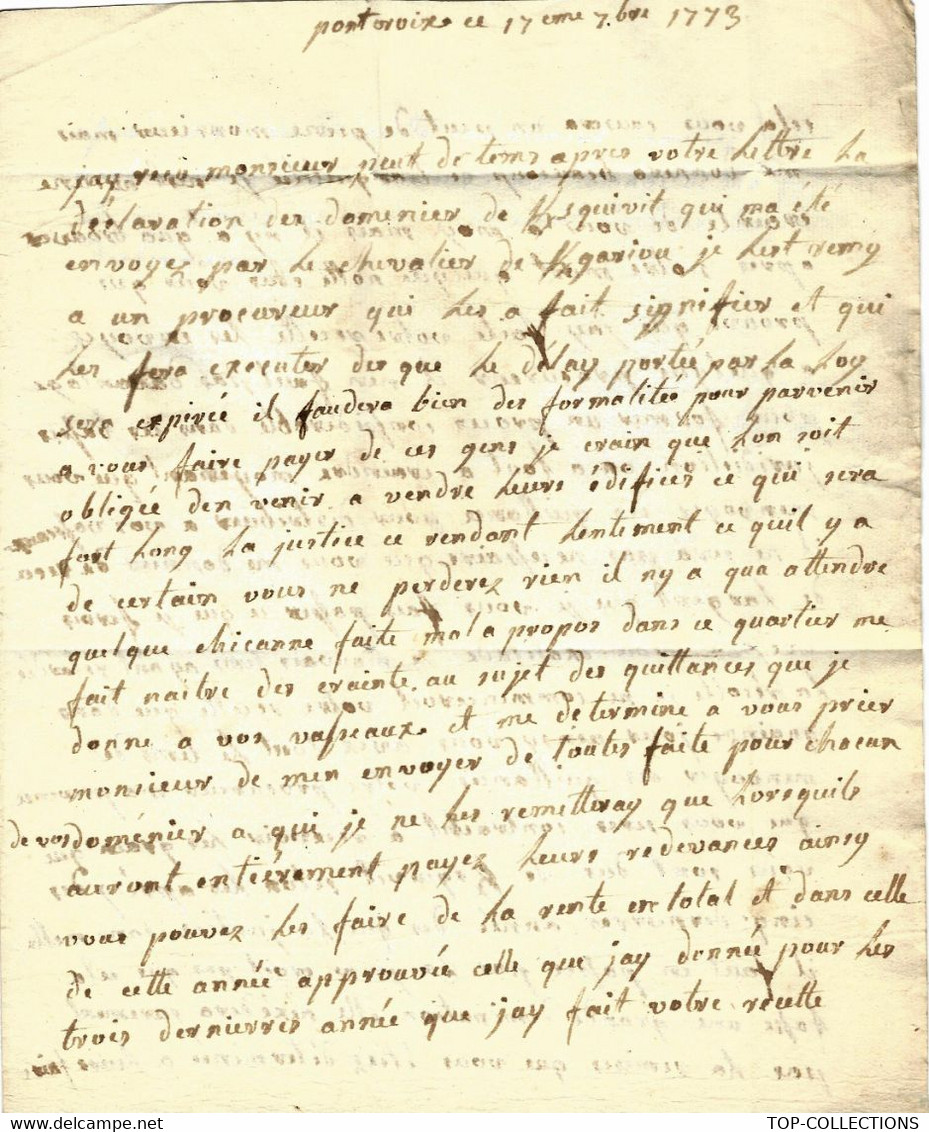 pontcroix ce 17eme 7.bre 1773
jay reçu monsieur peut de tems apres votre lettre la
déclaration des domenier de Kguivit qui ma été
envoyez par le chevalier de Kgariou je lest remy
a un procureur qui les a fait signifier et qui
les fera executer des que le délay portée par la loy
sera expirée il faudera bien des formalités pour parvenir
a vous faire payer de ces gens je crain que lon soit
obligée den venir a vendre leurs édifices ce qui sera
fort long la justice ce rendant lentement ce quil y a
de certain vous ne perderez rien il ny a qua attendre
quelque chicanne faite mal a propos dans ce quartier me
fait naitre des crainte au sujet des quittances que je
donne a vos vasseaux et me determine a vous prier
monsieur de men envoyer de toutes faite pour chacun
de vos doménier a qui je ne les remetteray que lorsquils
auront entiérement payez leurs redevances ainsy
vous pouvez les faire de la rente en total et dans celle
de cette année approuvée celle que jay donnée pour les
trois dernierres année que jay fait votre recette
TOP-COLLECTIONS